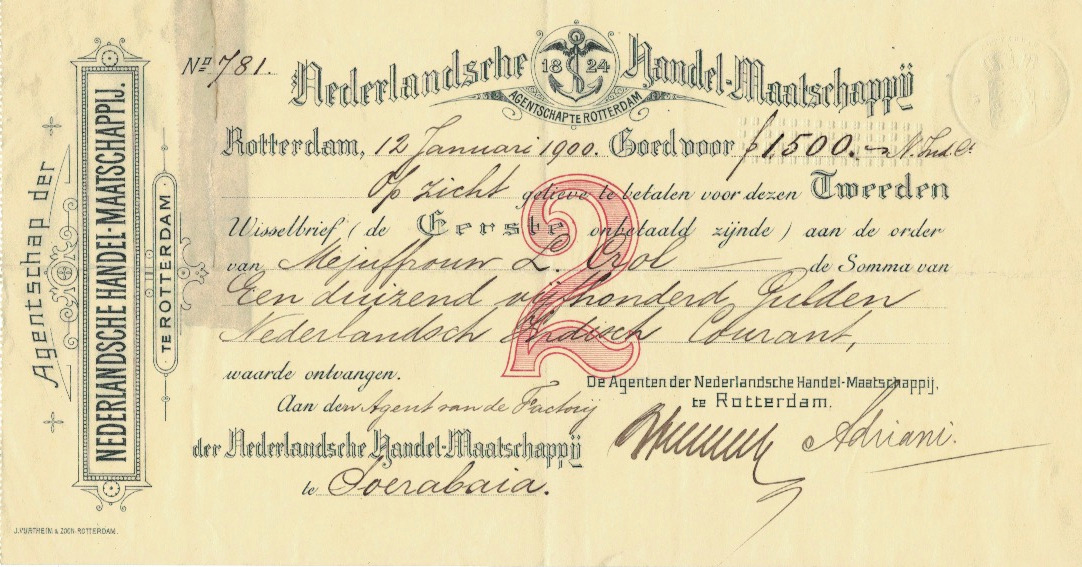 Agentschap der
NEDERLANDSCHE HANDEL-MAATSCHAPPIJ.
TE ROTTERDAM
No. 781.
Nederlandsche Handel-Maatschappij
1824
AGENTSCHAP TE ROTTERDAM
Rotterdam, 12 Januari 1900. Goed voor ƒ 1500.- N. Ind. Ct
Op zicht gelieve te betalen voor dezen Tweeden
Wisselbrief (de Eerste onbetaald zijnde) aan de order
van Mejuffrouw L. Crol de Somma van
Een duizend vijfhonderd Gulden
Nederlandsch Indisch Courant,
2
waarde ontvangen.
De Agenten der Nederlandsche Handel-Maatschappij,
te Rotterdam.
Aan den Agent van de Factorij
der Nederlandsche Handel-Maatschappij
te Soerabaia.
Adriani.
J. VÜRTHEIM & ZOON-ROTTERDAM.